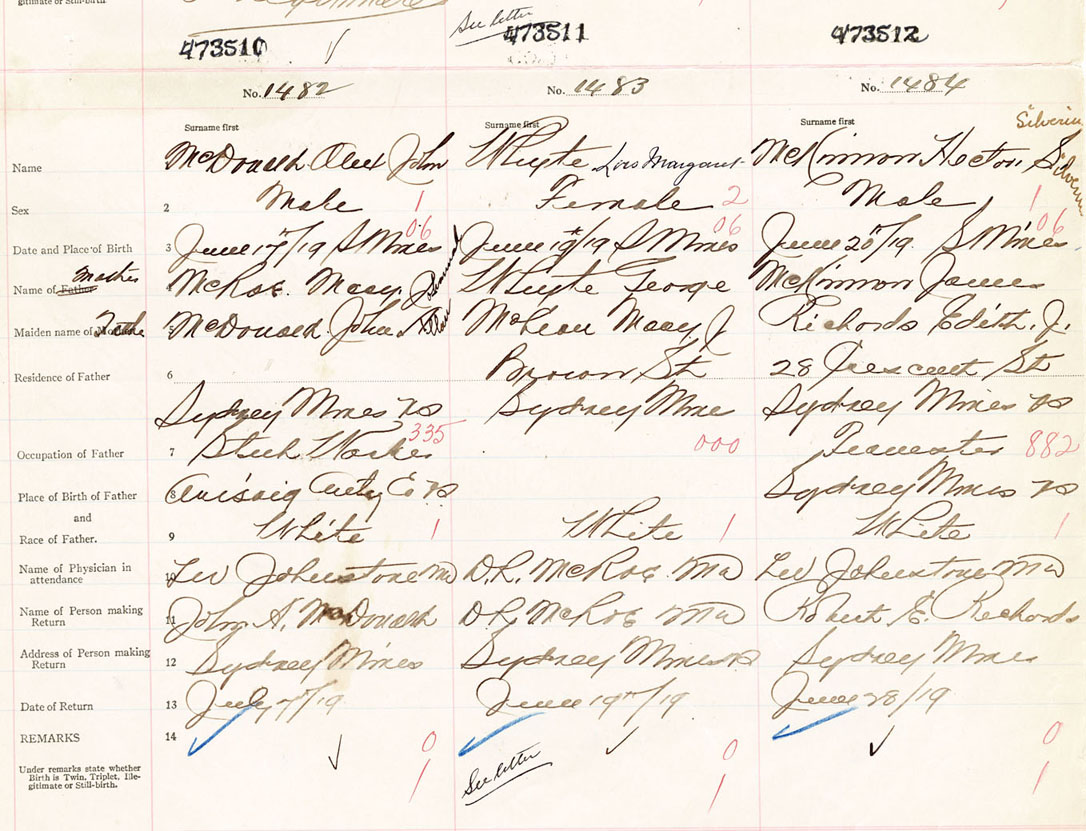 gitimate or Still-birth.
See letter
473510 473511 473512
No. 1482 No. 1483 No. 1484
Surname first Surname first Surname first
"Silverius
Name McDonald Alex John Whyte Lois Margaret McKinnon Hector
Sex 2 Male 1 Female 2 Male 1
06 06 06
Date and Place of Birth 3 June 17th/19 S Mines June 19th/19 S Mines June 20th/19. S Mines
mother
Name of Father McRae. Mary. Whyte George McKinnon James
Maiden name of Mother 5 McDonald. John McLean Mary J Richards Edith. J.
Brown St 28 Crescent St
Residence of Father 6
Sydney Mines NS Sydney Mine Sydney Mines NS
335
Occupation of Father 7 Steel Worker 000 Teamster 882
Place of Birth of Father 8 Arisaig NS Sydney Mines NS
and
Race of Father. 9 White 1 White 1 White 1
Name of Physician in attendance 10 Johnstone MD D.R. McRae. MD Johnstone MD
Name of Person making Return 11 John A. McDonald D R McRae MD Robert E. Richards
Address of Person making Return 12 Sydney Mines Sydney Mines NS Sydney Mines
Date of Return 13 July 7th/19 June 19th/19 June 28/19
REMARKS 14
0 0 0
Under remarks state whether
Birth is Twin, Triplet, Ille-
gitimate or Still-birth.
1 See letter 1 1